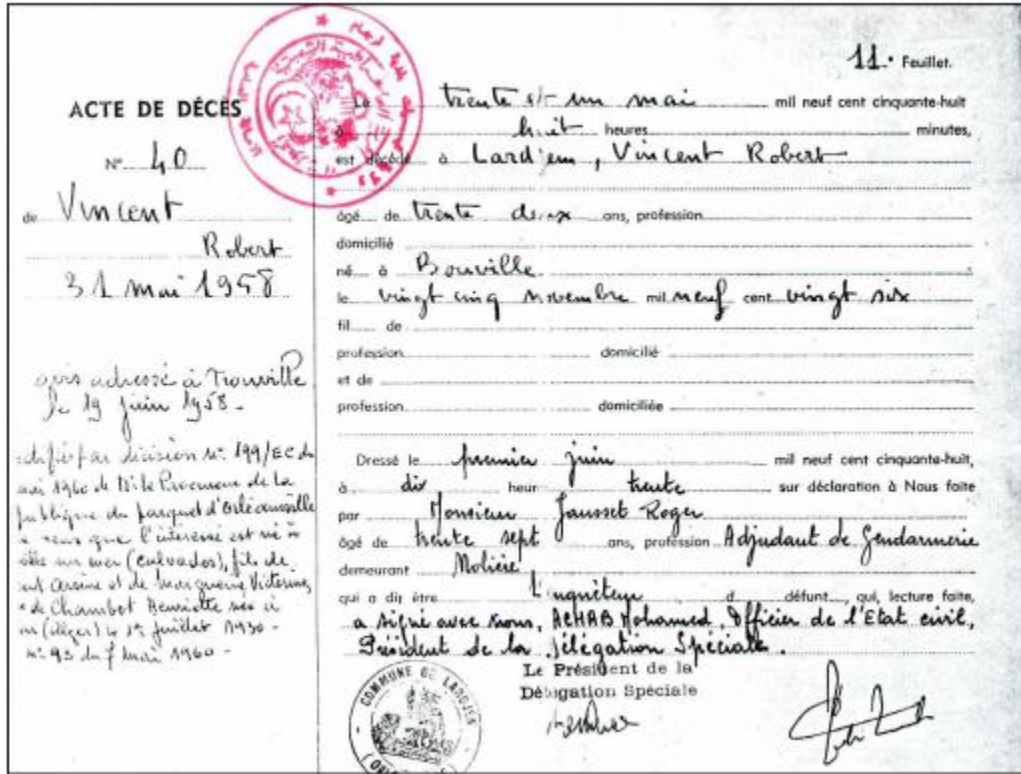 11. Feuillet.
ACTE DE DÉCÈS
N° 40
de Vincent
Robert
31 mai 1958
avis adressé à Trouville
le 19 juin 1958 -
par décision n° 199/EC du
mai 1960 de M. le Procureur de la
publique du parquet d'Orléansville
sens que l'intéressé est né à
sur mer (Calvados), fils de
Arsène et de Victorine,
de Chambot Henriette née à
(Alger) le 1er juillet 1930 -
n° 93 du 7 mai 1960 -
Le trente et un mai mil neuf cent cinquante-huit
à huit heures minutes,
est décédé à Lardjem, Vincent Robert
âgé de trente deux ans, profession
domicilié
né à Bouville
le vingt cinq novembre mil neuf cent vingt six
fil de
profession domicilié
et de
profession domiciliée
Dressé le premier juin mil neuf cent cinquante-huit,
à dix heur trente sur déclaration à Nous faite
par Monsieur Jausset Roger
âgé de trente sept ans, profession Adjudant de Gendarmerie
demeurant Molière
qui a dit être L'enquêteur d défunt, qui, lecture faite,
a signé avec nous, ACHAB Mohamed, Officier de l'Etat civil,
Président de la Délégation Spéciale.
Le Président de la
Délégation Spéciale
COMMUNE DE LARDJEM